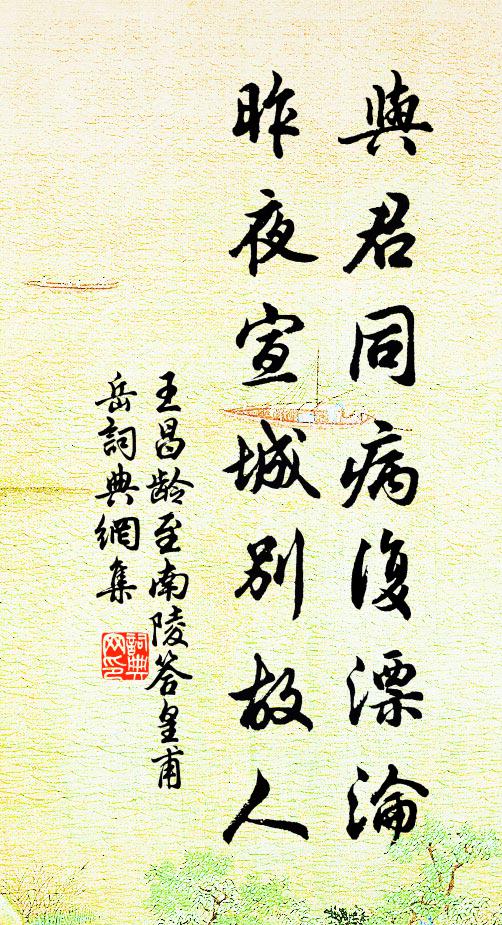 與君同病復漂淪
昨夜宣城別故人
王昌龄至南陵答皇甫
岳詞典網集
詞典
网印